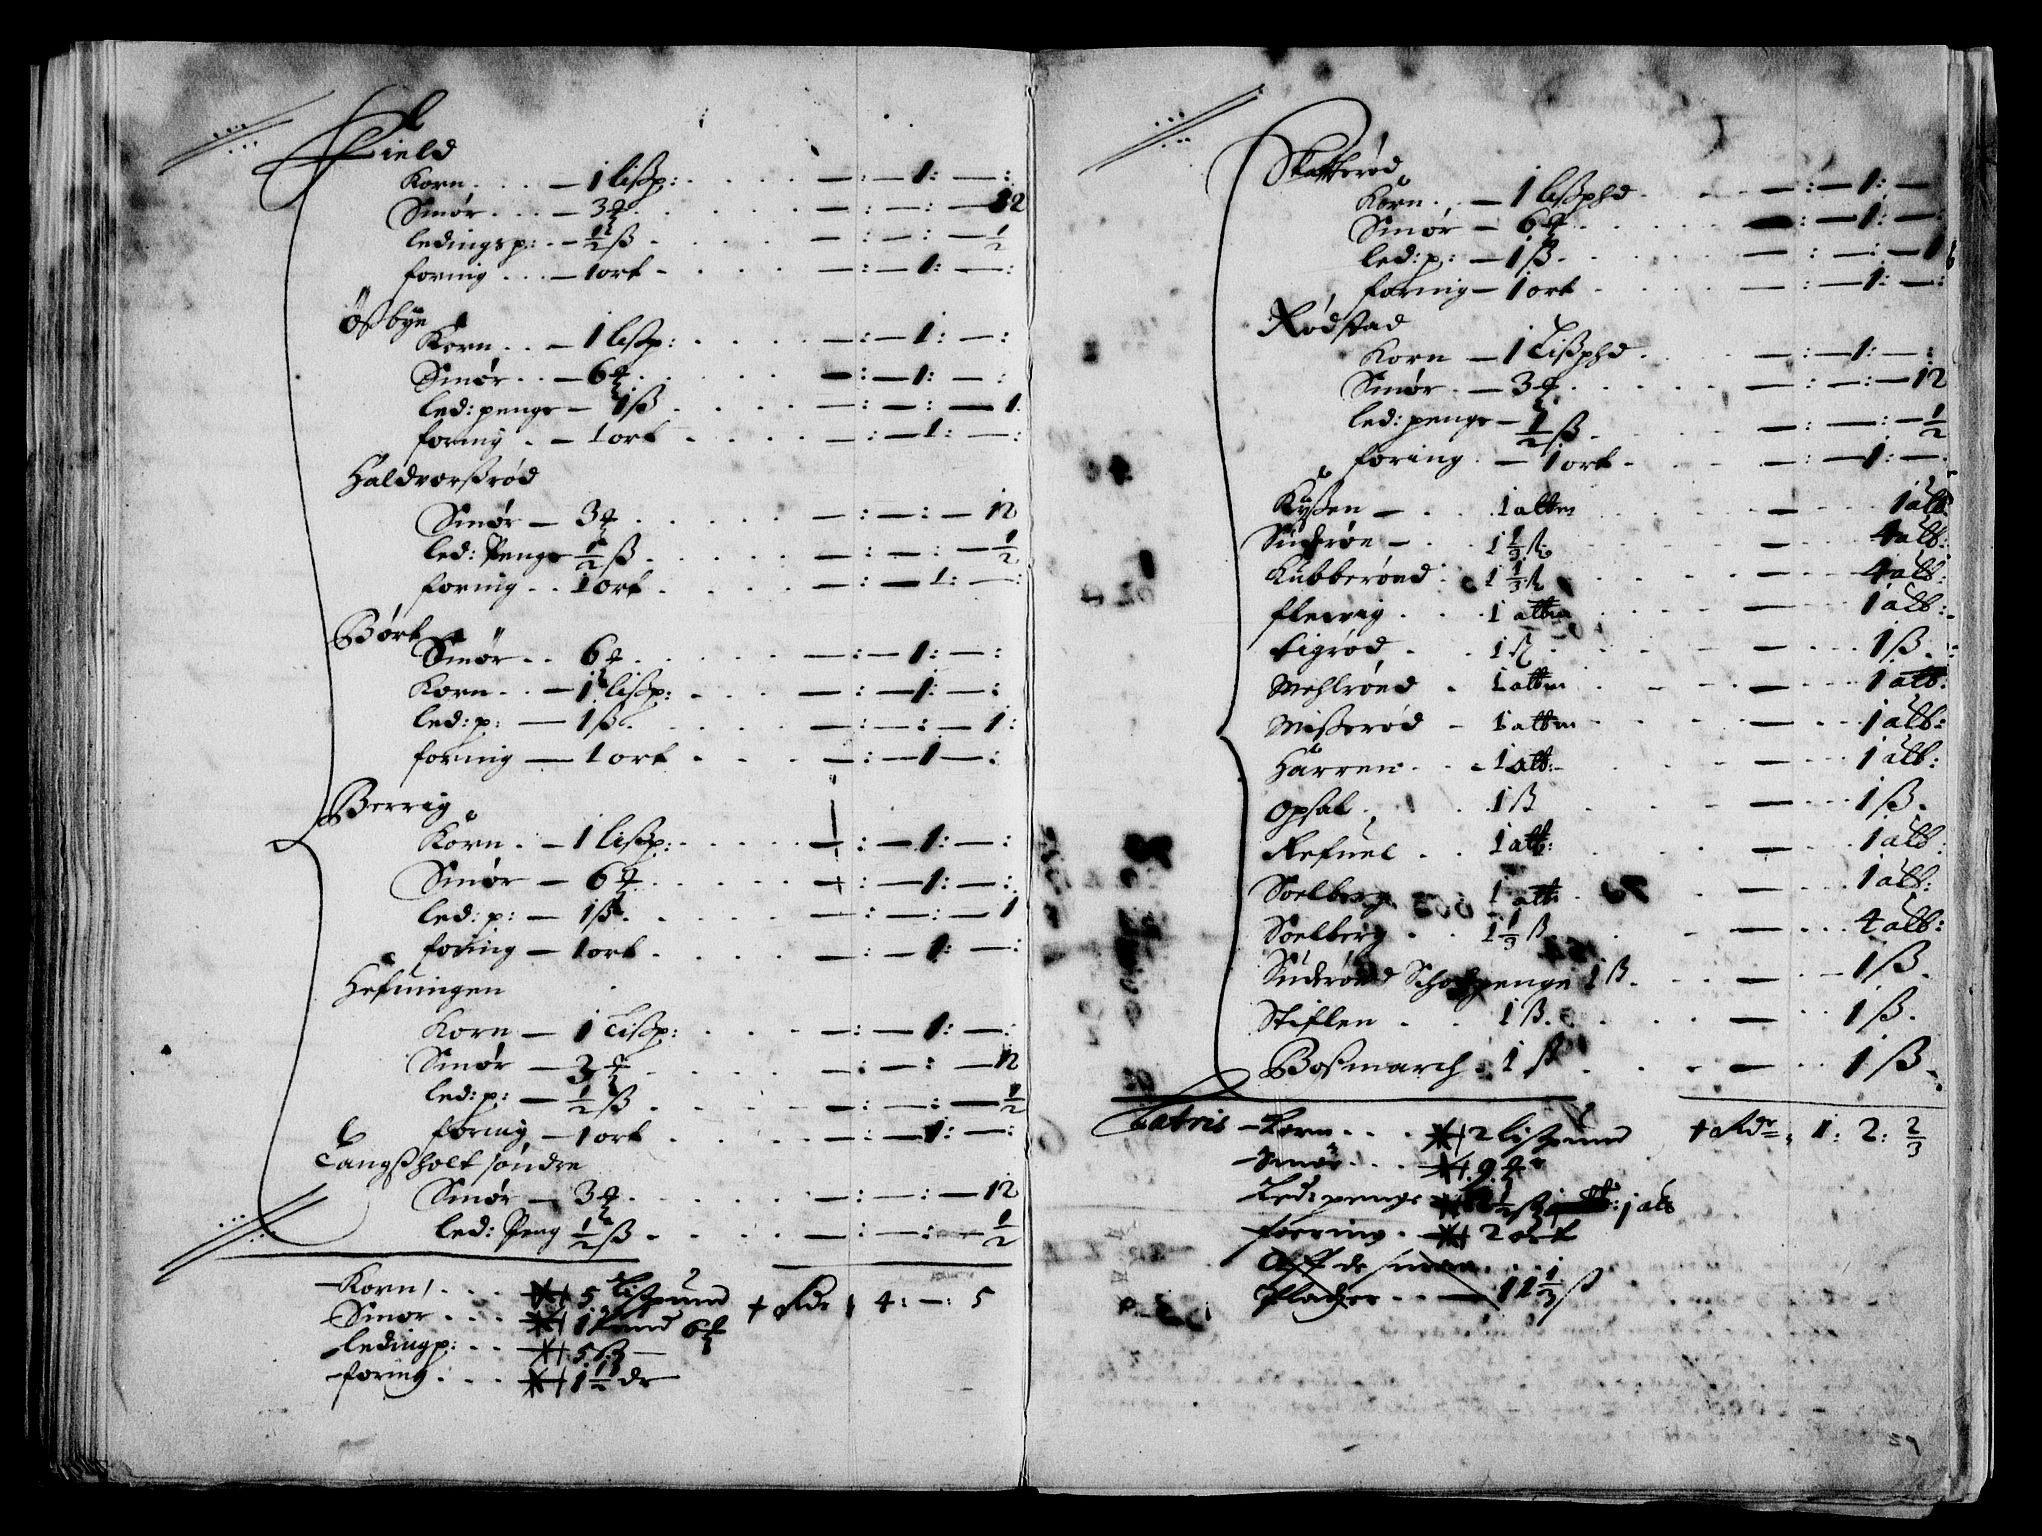 Field
Korn . . . — 1 lißp: . . . . — : — 1: — :
Smør . . . — 3 ℔ . . . . — : — : — 12
ledingsp: . — 1/2 ß . . . . — : — : — 1/2
foring . . . — 1 ort . . . . — : — 1: — :
Ößbye
Korn . . — 1 lißp: . . . . — : — 1: — :
Smør . . — 6 ℔ . . . . — : — 1: — :
led: penge — 1 ß . . . . — : — : — 1:
foring . — 1 ort . . . . — : — 1: — :
Haldvorßrød
Smør — 3 ℔ . . . . — : — : — 12
led: Penge 1/2 ß . . . . — : — : — 1/2
foring . . 1 ort . . . . — : — 1: — :
Børk
Smør . . 6 ℔ . . . . — : — 1: — :
Korn . . — 1 lißp: . . . — : — 1: — :
led: p: — 1 ß . . . . — : — : — 1:
foring — 1 ort . . . . — : — 1 — :
Berrig
Korn . — 1 lißp: . . . . — : — 1: — :
Smør — 6 ℔ . . . . — : — 1: — :
led: p: — 1 ß . . . . — : — : — 1
foring — 1 ort . . . . — : — 1: — :
Hefningen
Korn — 1 Lißp: . . . . — : — 1: — :
Smør — 3 ℔ . . . . — : — : — 12
led: p: — 1/2 ß . . . . — : — : — 1/2
foring — 1 ort . . . . — : — 1: — :
Langßholt søndre
Smør — 3 ℔ . . . . — : — : — 12
led: Peng 1/2 ß . . . . — : — : — 1/2
Korn . . . 5 Lißpund + Rdr 4: — : 5
Smør . . . 1 Pund 6 ℔
ledingp: . . 5 ß
foring . . . 1 1/2 dr
Skatterød
Korn . . — 1 lißphd . . . — : — 1: —
Smør — 6 ℔ . . . . — : — 1: — :
led: p: — 1 ß . . . . — : — : — 1
foring — 1 ort . . . . — : — 1: — :
Rødstad
Korn — 1 Lißphd . . . — : — 1: — :
Smør . — 3 ℔ . . . . — : — : — 12
led: penge — 1/2 ß . . . . — : — : — 1/2
foring . — 1 ort . . . . — : — 1: — .
Kyßen — . . 1 alten . . . — . . 1 alb:
Suderøn — . . 1 1/3 ß . . . — . . 4 alb:
Lubberønd . . 1 1/3 ß . . . — . . 4 alb:
flewig . . . 1 alten . . . — . . 1 alb:
Ligrød . . 1 ß . . . — . . 1 ß .
Mehlrønd . 1 alten . . . — . . 1 alb:
Mißerød — 1 alten . . . — . . 1 alb:
Harren . . . 1 alt: . . . — . . 1 alb:
Opsal . . . 1 ß . . . — . . 1 ß .
Refnel . . 1 alt: . . . — . . 1 alb.
Soelberg 1 alt: . . . — . . 1 alb:
Soelberg . . 1 1/3 ß . . . — . . 4 alb:
Suderønd penge 1 ß . . . — . . 1 ß .
Stiflen . . . 1 ß . . . — . . 1 ß .
Boßmarch . 1 ß . . . — . . 1 ß .
Lateris Korn . . . 2 lißpund + Rdr 1: 2: 2/3
Smør . . . 9 ℔
Led: penge 1/2 ß 1 alb
foering . 2 ort
11 1/3 ß
59